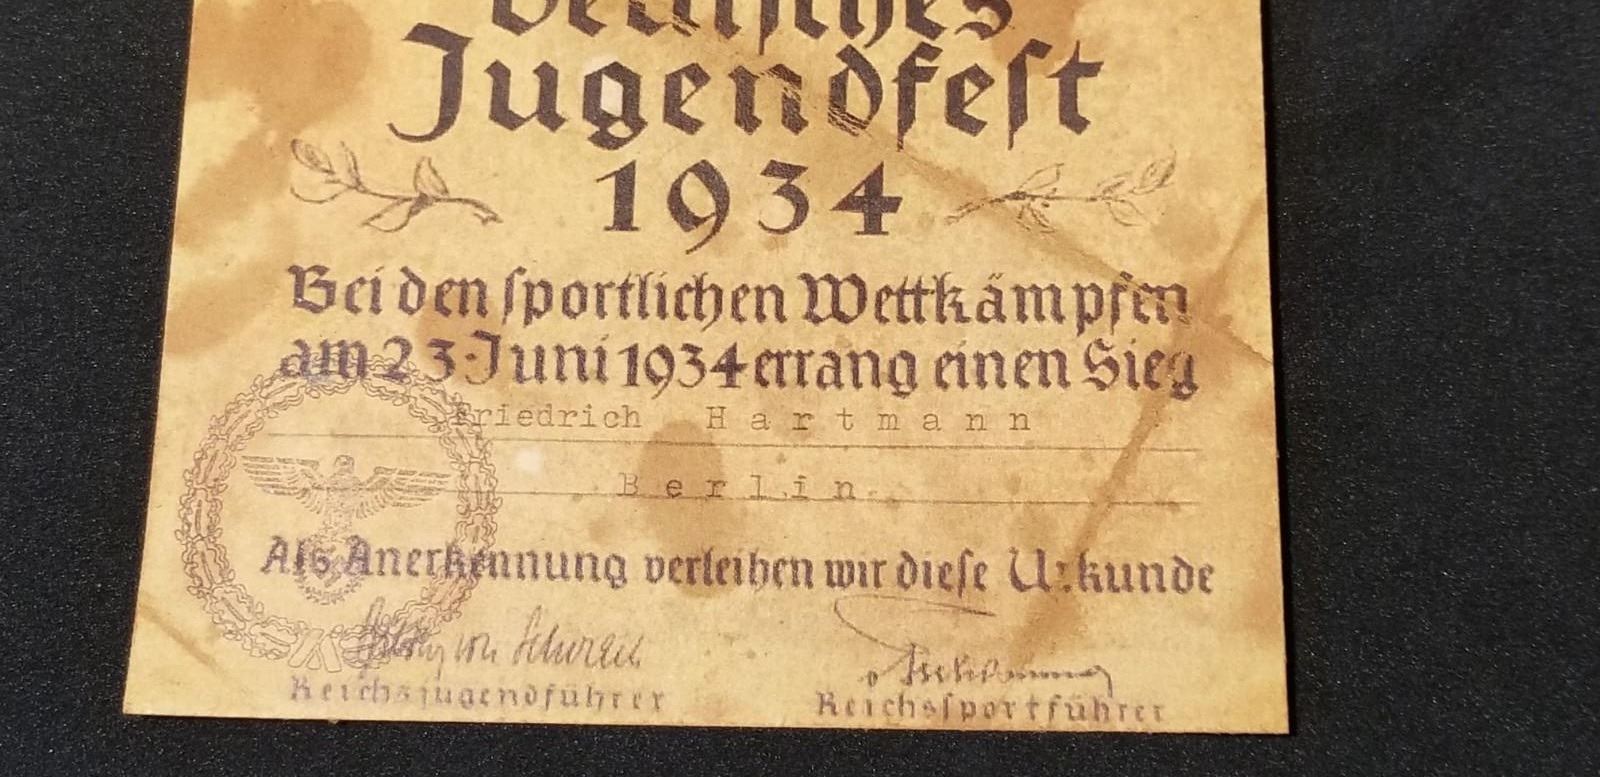 Deutsches
Jugendfest
1934
Bei den sportlichen Wettkämpfen
am 23. Juni 1934 errang einen Sieg
Friedrich Hartmann
Berlin.
Als Anerkennung verleihen wir diese Urkunde
von
Reichsjugendführer
Reichssportführer